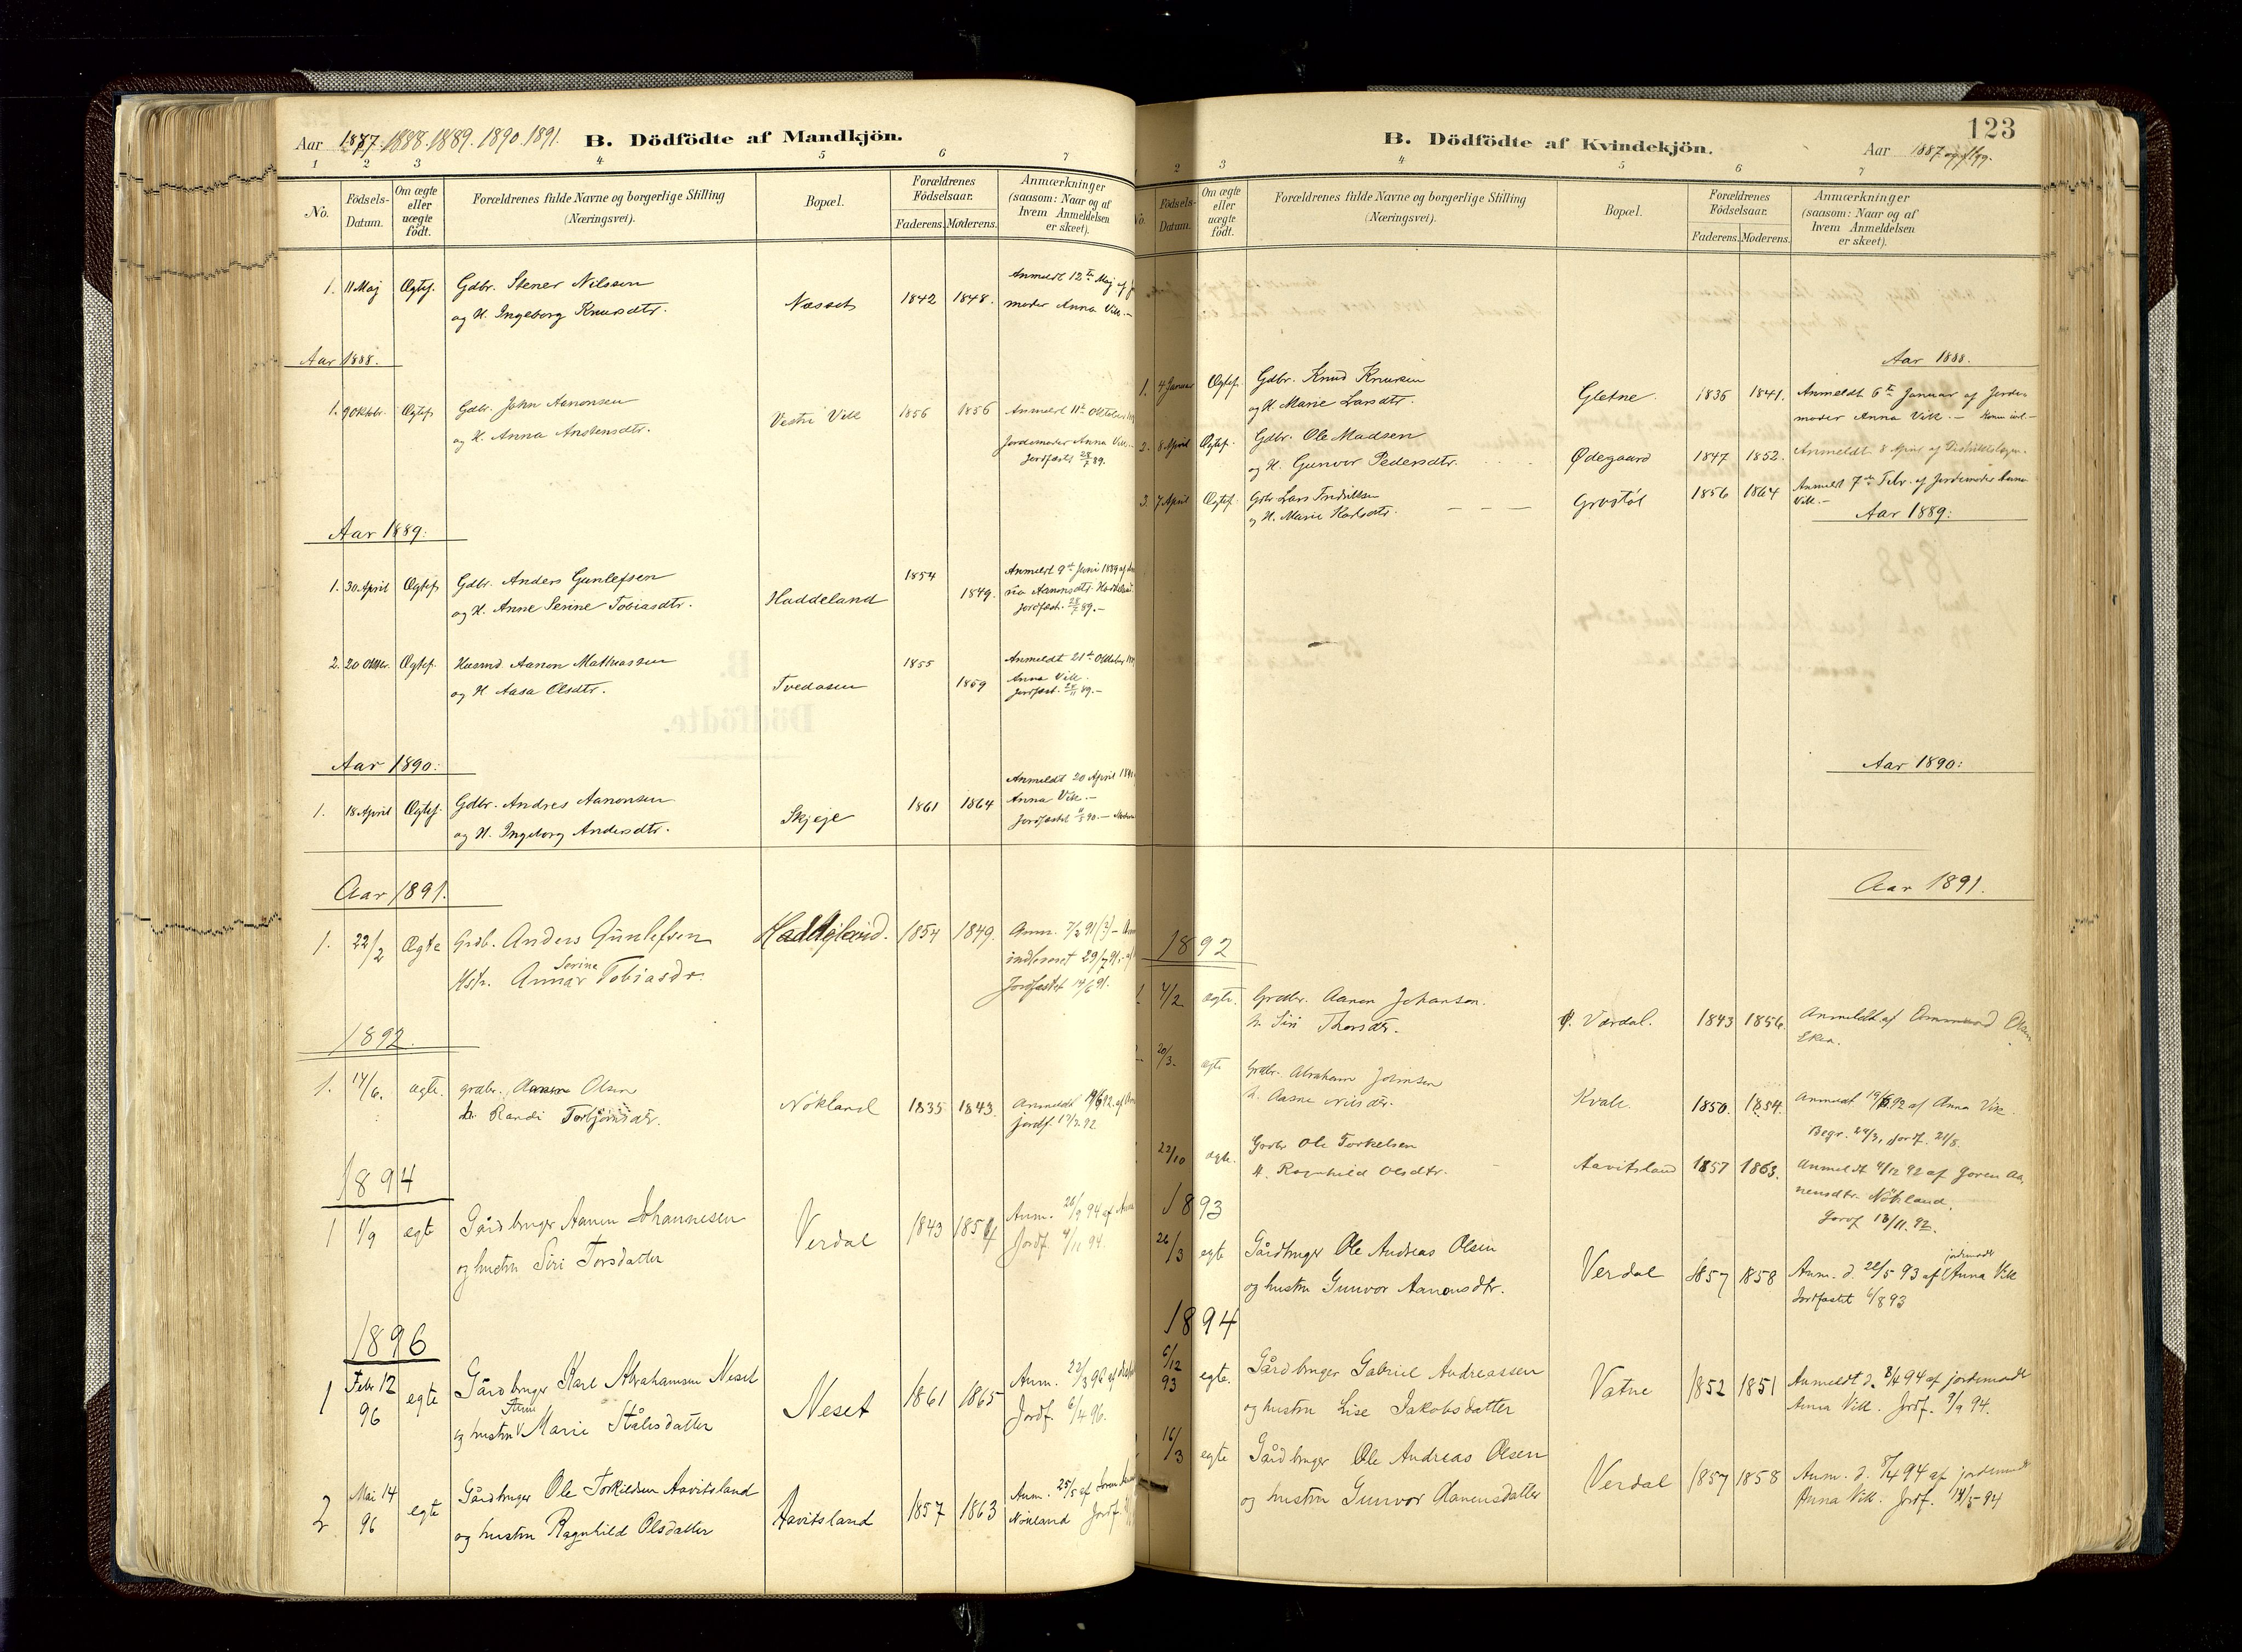 Aar 1887. 1888. 1889. 1890. 1891.
B. Dödfödte af Mandkjön.
1 2 3 4 5 6 7
No.
Födsels-Datum.
Om ægte eller uægte födt.
Forældrenes fulde Navne og borgerlige Stilling
(Næringsvei).
Bopæl.
Forældrenes Födselsaar.
Faderens. Moderens.
Anmærkninger
(saasom: Naar og af
hvem Anmeldelsen
er skeet).
1. 11 Maj Ægtef. Gdbr. Stener Nilssen
og H. Ingeborg Knudsdtr. Næsset 1842 1848.
Anmeldt 12te Maj af
moder Anna Vik. –
Aar 1888.
1. 9 Oktobr. Ægtef. Gdbr. John Aanonsen
og H. Anna Anstensdtr. Vestre Vik 1856 1856
Anmeldt 11te Oktober
Jordemoder Anna Vik. –
Jordfæstet 89.
Aar 1889:
1. 30 April Ægtef. Gdbr. Anders Gunlefsen
og H. Anne Serine Tobiasdtr. Haddeland 1854 1849.
Anmeldt 9de Juni 1889 af
Aanonsdtr.
Jordfæst. 89. –
2. 20 Oktbr. Ægtef. Husmd Aanon Mathiassen
og H. Aasa Olsdtr. Tvedasen 1855 1859
Anmeldt 21de Oktober
Anna Vik.
Jordfæst. 89. –
Aar 1890:
1. 18 April Ægtef. Gdbr. Andres Aanonsen
og H. Ingeborg Andersdtr. Skjeje 1861 1864
Anmeldt 20 April
Anna Vik. –
Jordfæstet 90. –
Aar 1891.
1. 22/2 Ægte Grdb. Anders Gunlefsen
Hst. Anna Serine Tobiasdr. 1854 1849.
Anm. 91
29/7 91
Jordfæstet 14/6 91.
1892.
1. 14/6. ægte. grdbr. Olsen
h. Randi Torbjörnsdtr. Nökland 1835 1843.
Anmeldt 92. af
Jordf. 92
1894
1 1/9 egte Gårdbruger Aanen Johannesen
og hustru Siri Torsdatter Verdal 1843
Anm. 26/9 94 af Anna
Jordf. 4/11 94.
1896
1 Febr 12 96 egte Gårdbruger Karl Abrahamsen Neset
og hustru Marie Stålesdatter Neset 1861 1865
Anm. 22/3 96 af
Jordf. 6/4 96.
2 Mai 14 96 egte Gårdbruger Ole Torkildsen Aavitsland
og hustru Ragnhild Olsdatter Aavitsland 1857 1863
Anm. 25/5 af
Nökland Jordf.
123
B. Dödfödte af Kvindekjön.
Aar 1887 og flgg.
2 3 4 5 6 7
No.
Födsels-Datum.
Om ægte eller uægte födt.
Forældrenes fulde Navne og borgerlige Stilling
(Næringsvei).
Bopæl.
Forældrenes Födselsaar.
Faderens. Moderens.
Anmærkninger
(saasom: Naar og af
hvem Anmeldelsen
er skeet).
Aar 1888.
1. 4 Januar Ægtef. Gdbr. Knud Knudsen
og H. Marie Larsdtr. Gletne. 1835 1841.
Anmeldt 6te Januar af Jorde-
moder Anna Vik. –
2. 8 April Ægtef. Gdbr. Ole Madsen
og H. Gunvor Pedersdtr. Ødegaard 1847 1852.
Anmeldt 8 April af Distriktslægen.
3. 7 April Ægtef. Gdbr Lars Fredriksen
og H. Marie Karlsdtr. – – – Grostöl 1856 1864
Anmeldt 7de Febr. af Jordemoder Anna
Vik. –
Aar 1889:
Aar 1890:
Aar 1891.
1892
1. 4/2 ægte. Grdbr. Aanen Johansen.
h. Siri Thorsdtr. Værdal. 1843 1856.
Anmeldt af
20/3. ægte Grdbr. Abraham Johnsen
h. Aasne Nilsdtr. Kvale. 1850. 1854.
Anmeldt 92 af Anna Vik.
Begr. 24/3, Jordf. 21/8.
22/10 ægte. Grdbr Ole Torkelsen
H. Ragnhild Olsdtr. Aavitsland 1857 1863.
Anmeldt 4/12 92 af Goren Aa-
nensdtr. Nökland.
Jordf 13/11. 92.
1893
26/3 egte Gårdbruger Ole Andreas Olsen
og hustru Gunvor Aanonsdtr. Verdal 1857 1858
Anm. d. 22/5 93 af jordemoder Anna Vik
Jordfæstet 6/8 93
1894
6/12 93 egte. Gårdbruger Gabriel Andreassen
og hustru Lise Jakobsdatter Vatne 1852 1851
Anmeldt d. 8/4 94 af jordemoder
Anna Vik. Jordf. 9/9 94.
16/3 egte Gårdbruger Ole Andreas Olsen
og hustru Gunvor Aanensdatter Verdal 1857 1858
Anm. d. 8/4 94 af jordemoder
Anna Vik. Jordf. 14/5 94